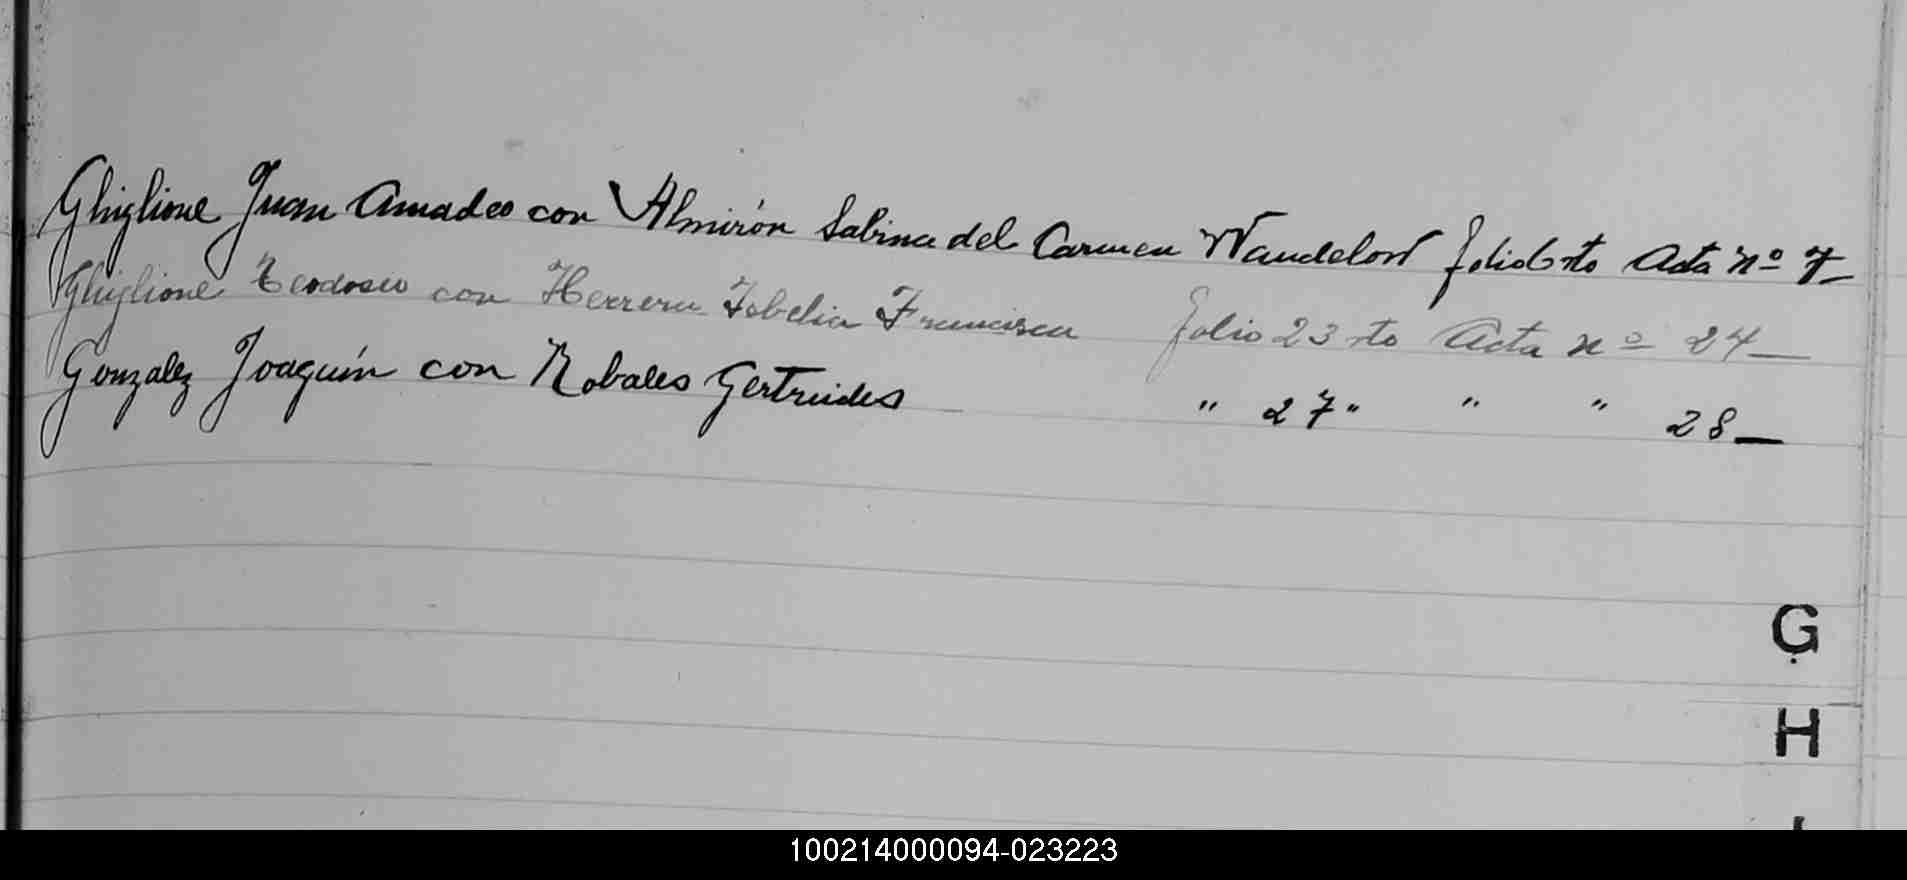 Ghiglione Juan Amadeo con Almirón Sabina del Carmen Wandelow folio 6 rto Acta nº 7
Ghiglione Teodosio con Herrera Isbelia Francisca folio 23 rto Acta nº 24—
Gonzalez Joaquín con Robales Gertrudes " 27 " " " 28—
G
H
100214000094-023223